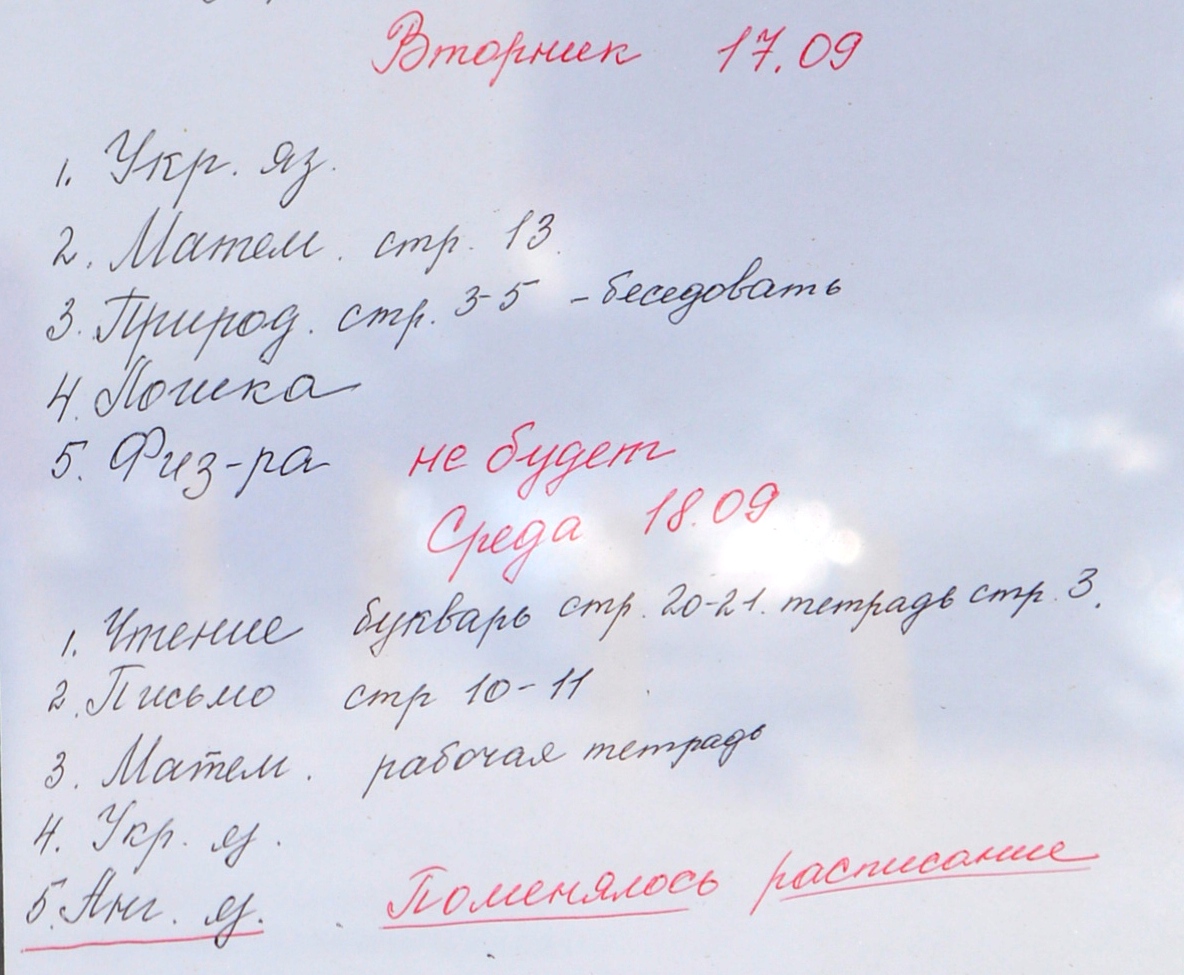 Вторник 17.09
1. Укр. яз.
2. Матем. стр. 13
3. Природ. стр. 3-5 - беседовать
4. Логика
5. Физ-ра не будет
Среда 18.09
1. Чтение букварь стр. 20-21. тетрадь стр. 3.
2. Письмо стр 10-11
3. Матем. рабочая тетрадь
4. Укр. яз.
5. Анг. яз. Поменялось расписание